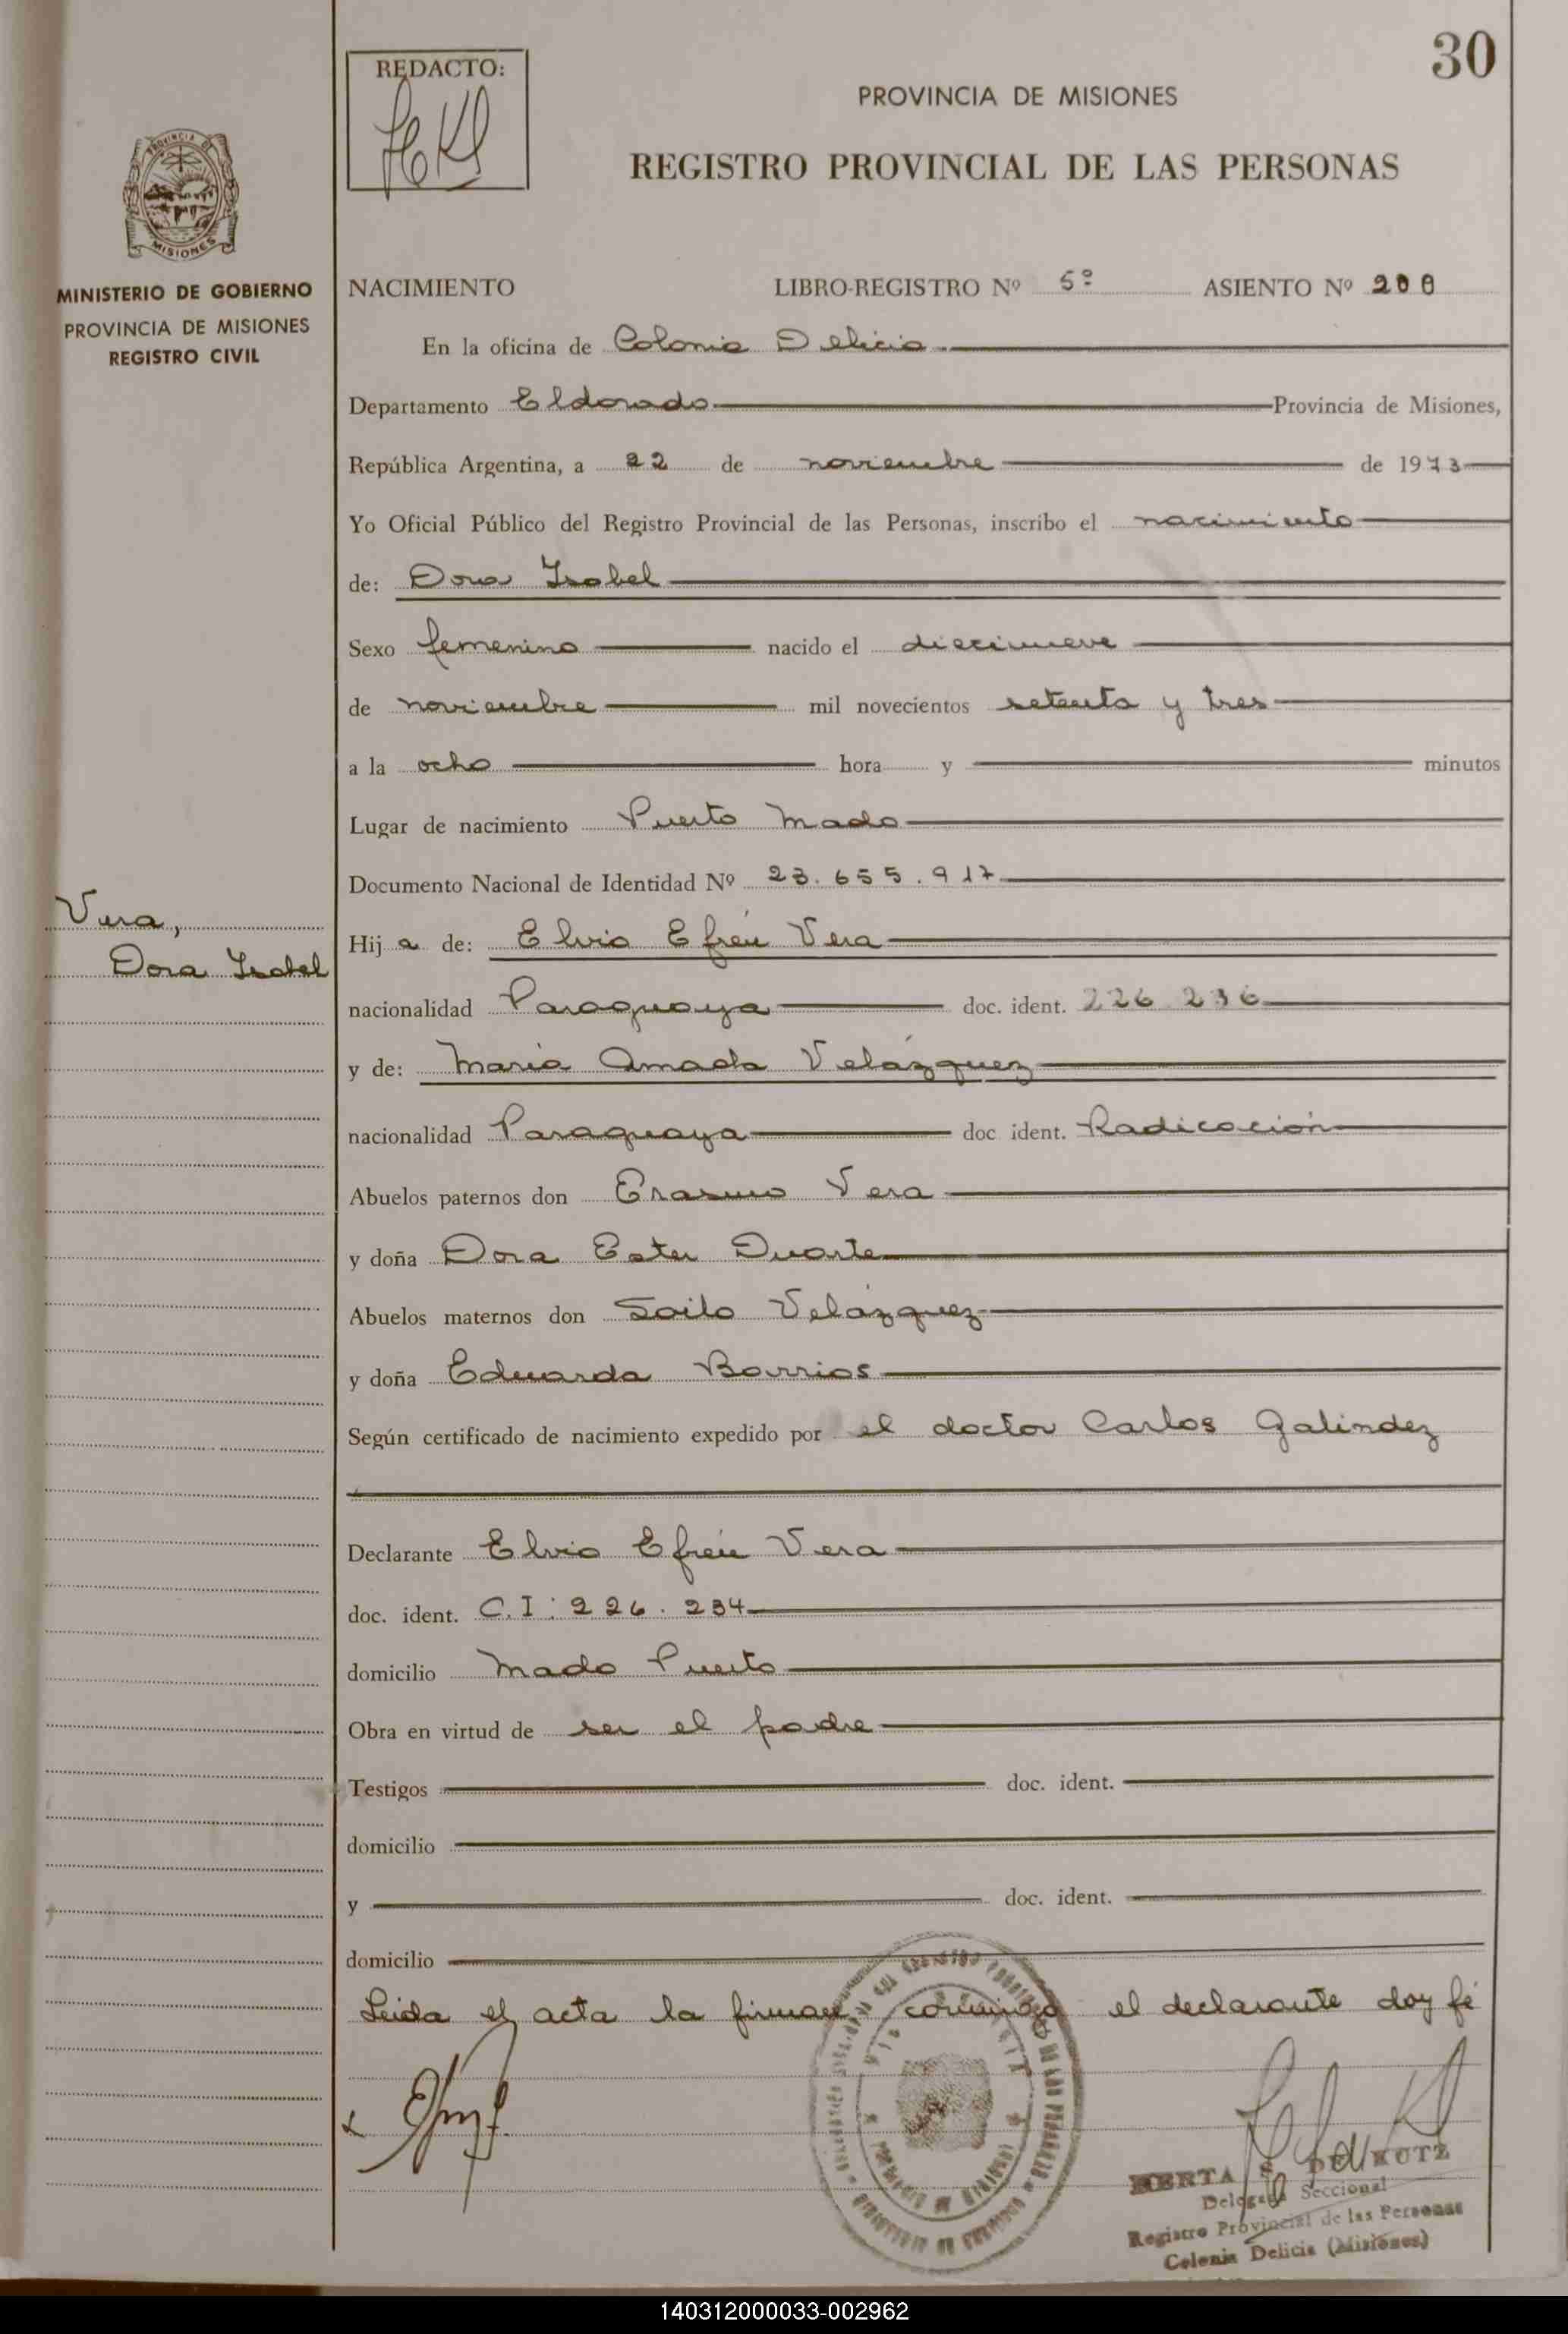 30
REDACTO:
PROVINCIA DE MISIONES
REGISTRO PROVINCIAL DE LAS PERSONAS
PROVINCIA DE
MISIONES
MINISTERIO DE GOBIERNO
PROVINCIA DE MISIONES
REGISTRO CIVIL
NACIMIENTO LIBRO-REGISTRO Nº 5º ASIENTO Nº 200
En la oficina de Colonia Delicia
Departamento Eldorado Provincia de Misiones,
República Argentina, a 22 de noviembre de 1973
Yo Oficial Público del Registro Provincial de las Personas, inscribo el nacimiento
de: Dora Isabel
Sexo femenino nacido el diecinueve
de noviembre mil novecientos setenta y tres
a la ocho hora y minutos
Lugar de nacimiento Puerto Mado
Documento Nacional de Identidad Nº 23.655.917
Vera,
Dora Isabel
Hij a de: Elvio Efrén Vera
nacionalidad Paraguaya doc. ident. 226 236
y de: María Amada Velázquez
nacionalidad Paraguaya doc ident. Radicación
Abuelos paternos don Erasmo Vera
y doña Dora Ester Duarte
Abuelos maternos don Soilo Velázquez
y doña Eduarda Barrios
Según certificado de nacimiento expedido por el doctor Carlos Galindez
Declarante Elvio Efrén Vera
doc. ident. C.I: 226.234
domicilio Mado Puerto
Obra en virtud de ser el padre
Testigos doc. ident.
domicilio
y doc. ident.
domicilio
Leida el acta la firman conmigo el declarante doy fé
HERTA KUTZ
Delegada Seccional
Registro Provincial de las Personas
Colonia Delicia (Misiones)
140312000033-002962